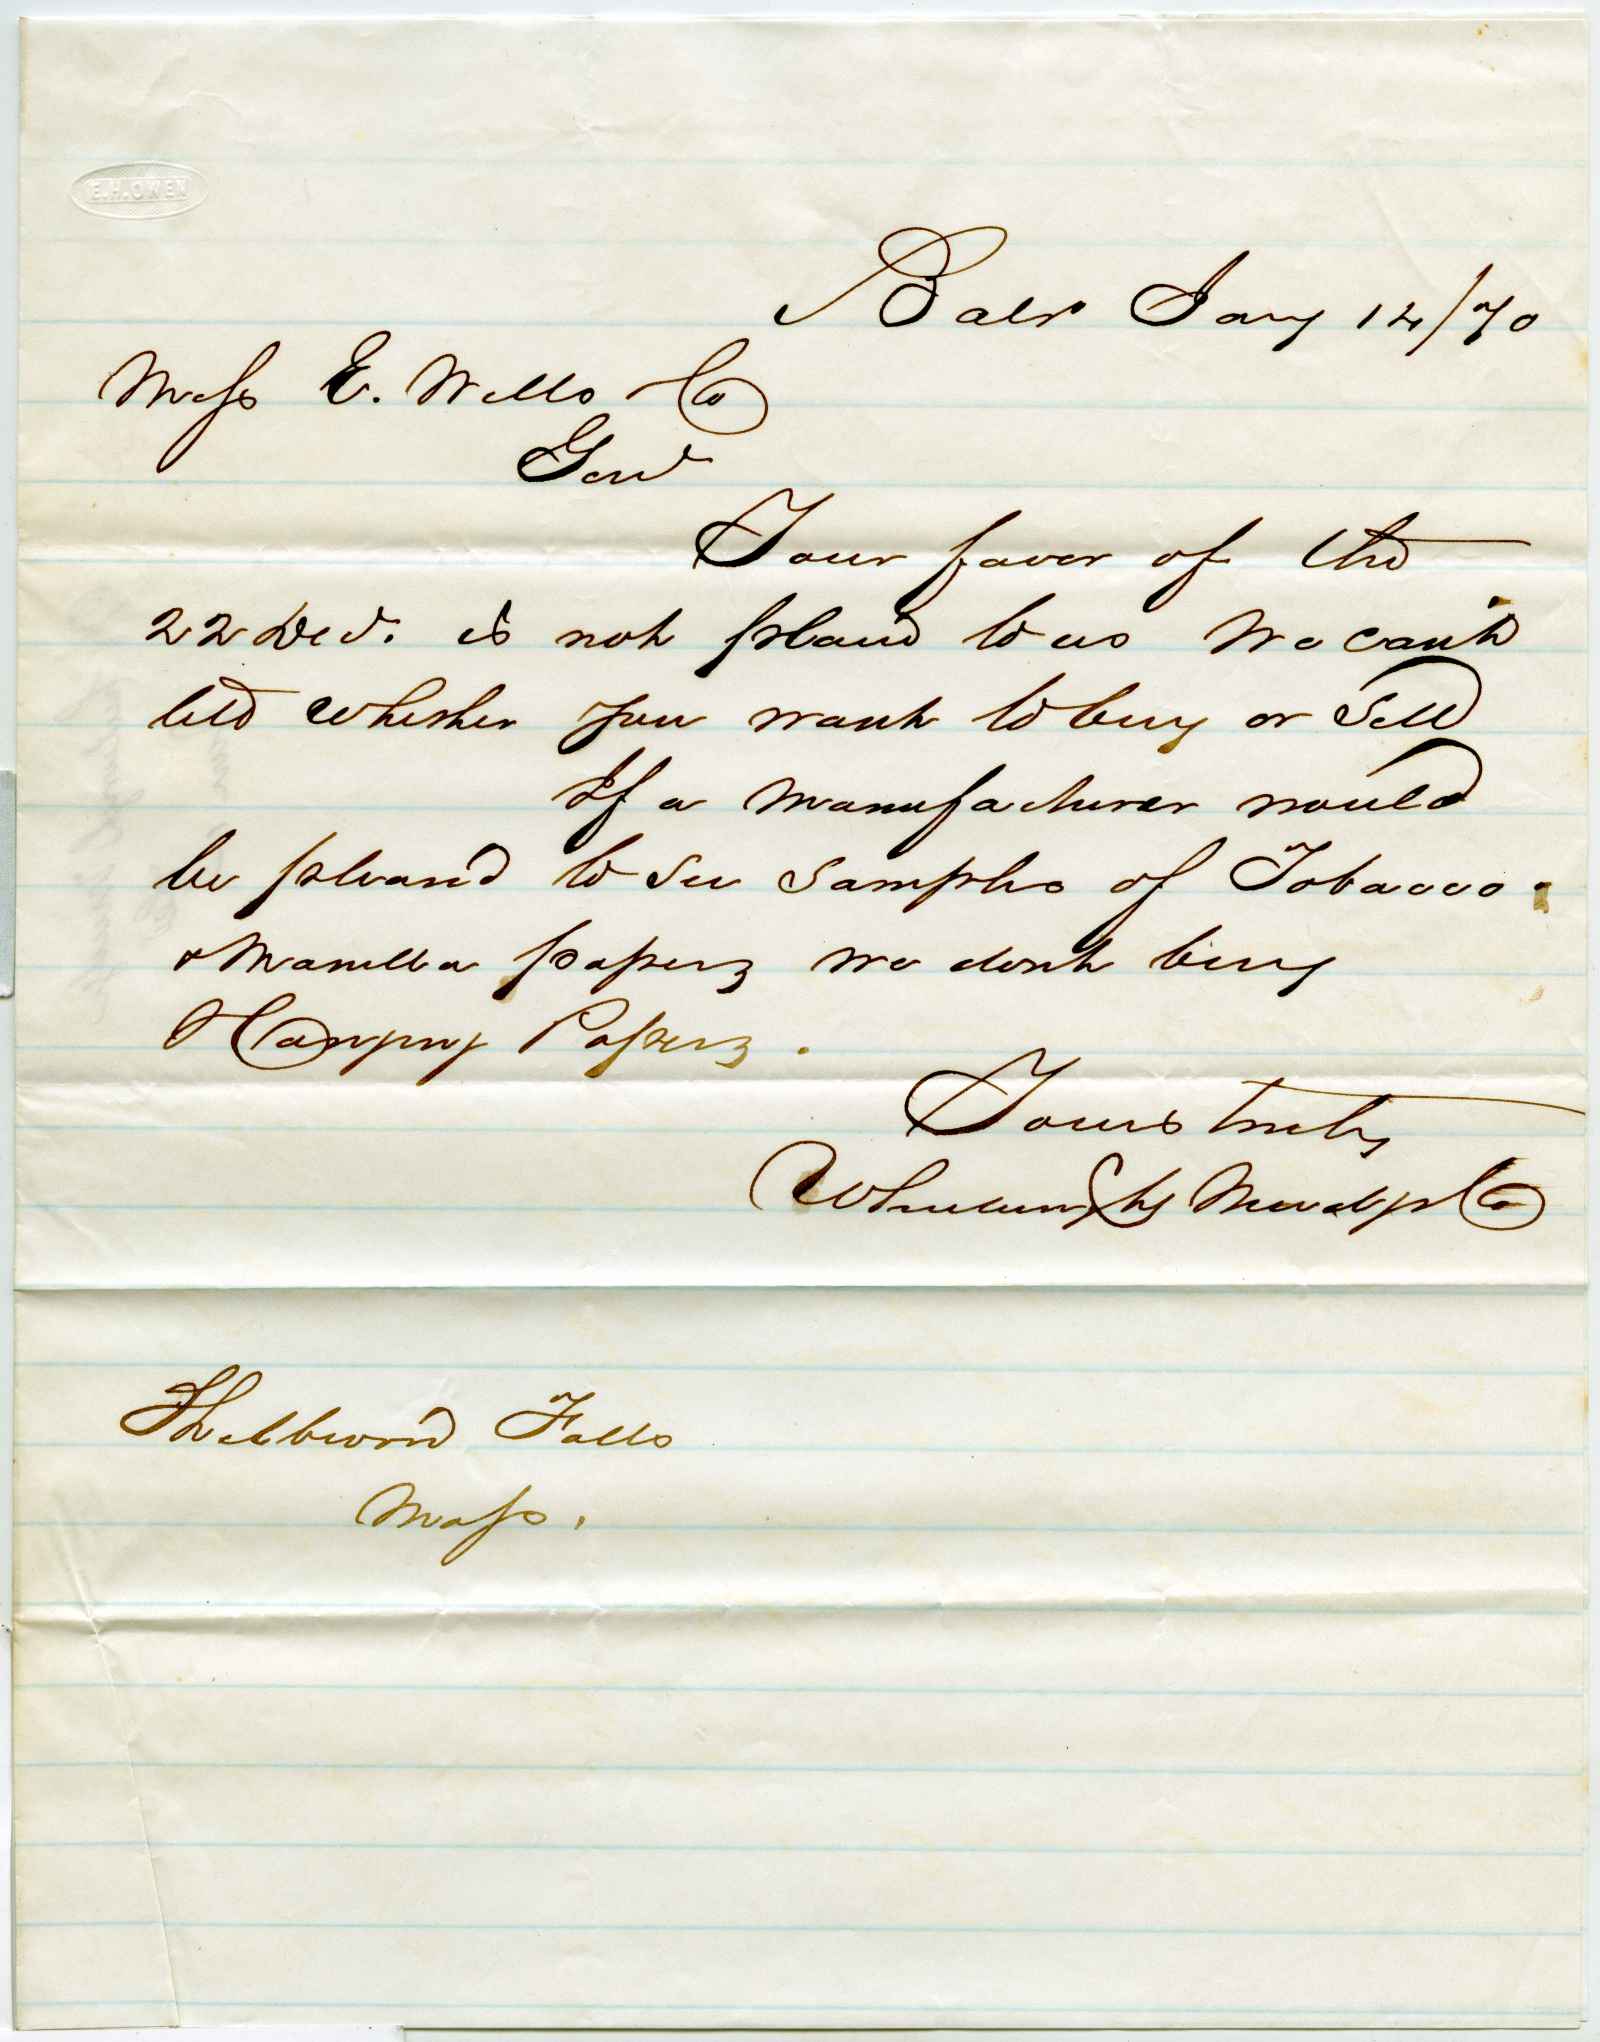 E.H.OWEN
Balto Jany 14/70
Mess E. Wells Co
Gent
Your favor of the
22 Dec. is not plain to us We can't
tell whether you want to buy or sell
If a manufacturer would
be pleas'd to see samples of Tobacco
& Manilla papers we dont buy
Hanging Papers.
Yours truly
Wheelwright Mudge Co
Shelburn Falls
Mass.